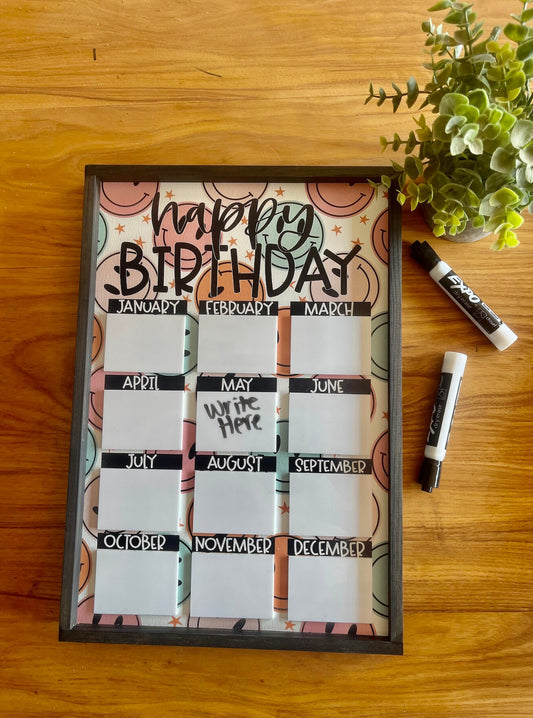 happy
BIRTHDAY
JANUARY FEBRUARY MARCH
APRIL MAY JUNE
Write
Here
JULY AUGUST SEPTEMBER
OCTOBER NOVEMBER DECEMBER
EXPO
EXPO